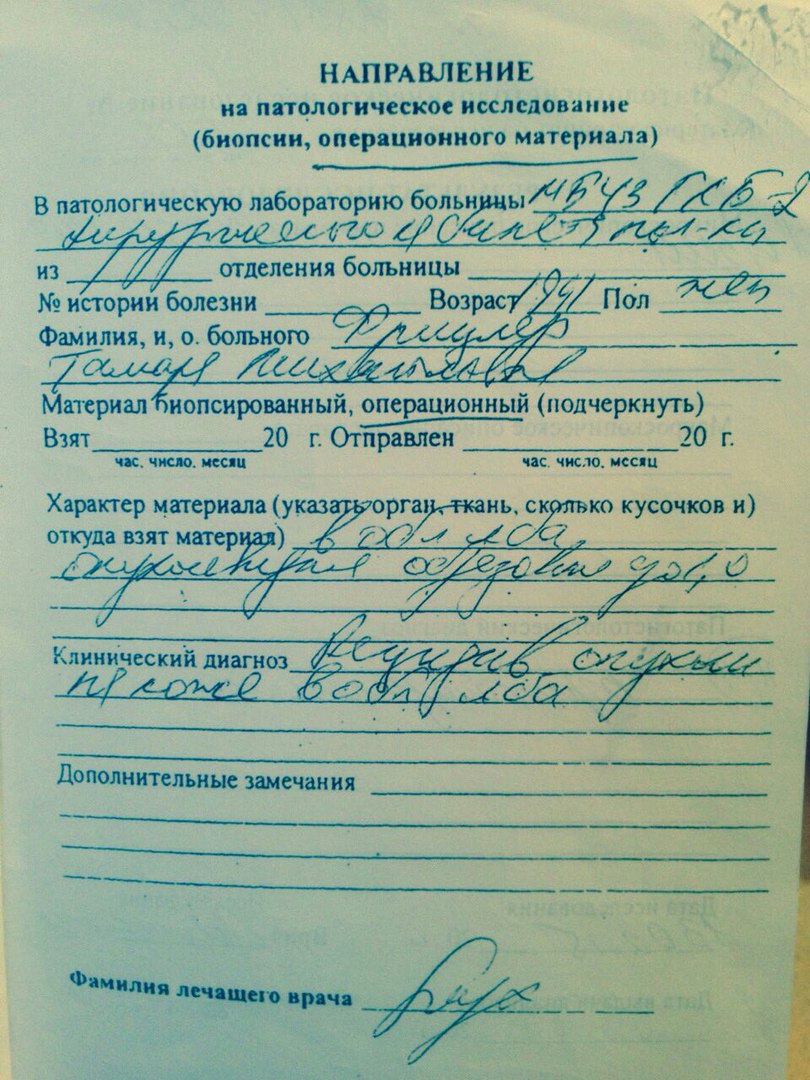 НАПРАВЛЕНИЕ
на патологическое исследование
(биопсии, операционного материала)
В патологическую лабораторию больницы МБУЗ ГКБ-2
хирургического кабинета пол-ки
из отделения больницы
№ истории болезни Возраст 1941 Пол жен
Фамилия, и, о. больного
Тамара Михайловна
Материал биопсированный, операционный (подчеркнуть)
Взят 20 г. Отправлен 20 г.
час. число. месяц час. число. месяц
Характер материала (указать орган, ткань, сколько кусочков и)
откуда взят материал) в обл лба
опухолевидн образование до 1,0
Клинический диагноз Рецидив опухоли
на коже в обл лба
Дополнительные замечания
Фамилия лечащего врача